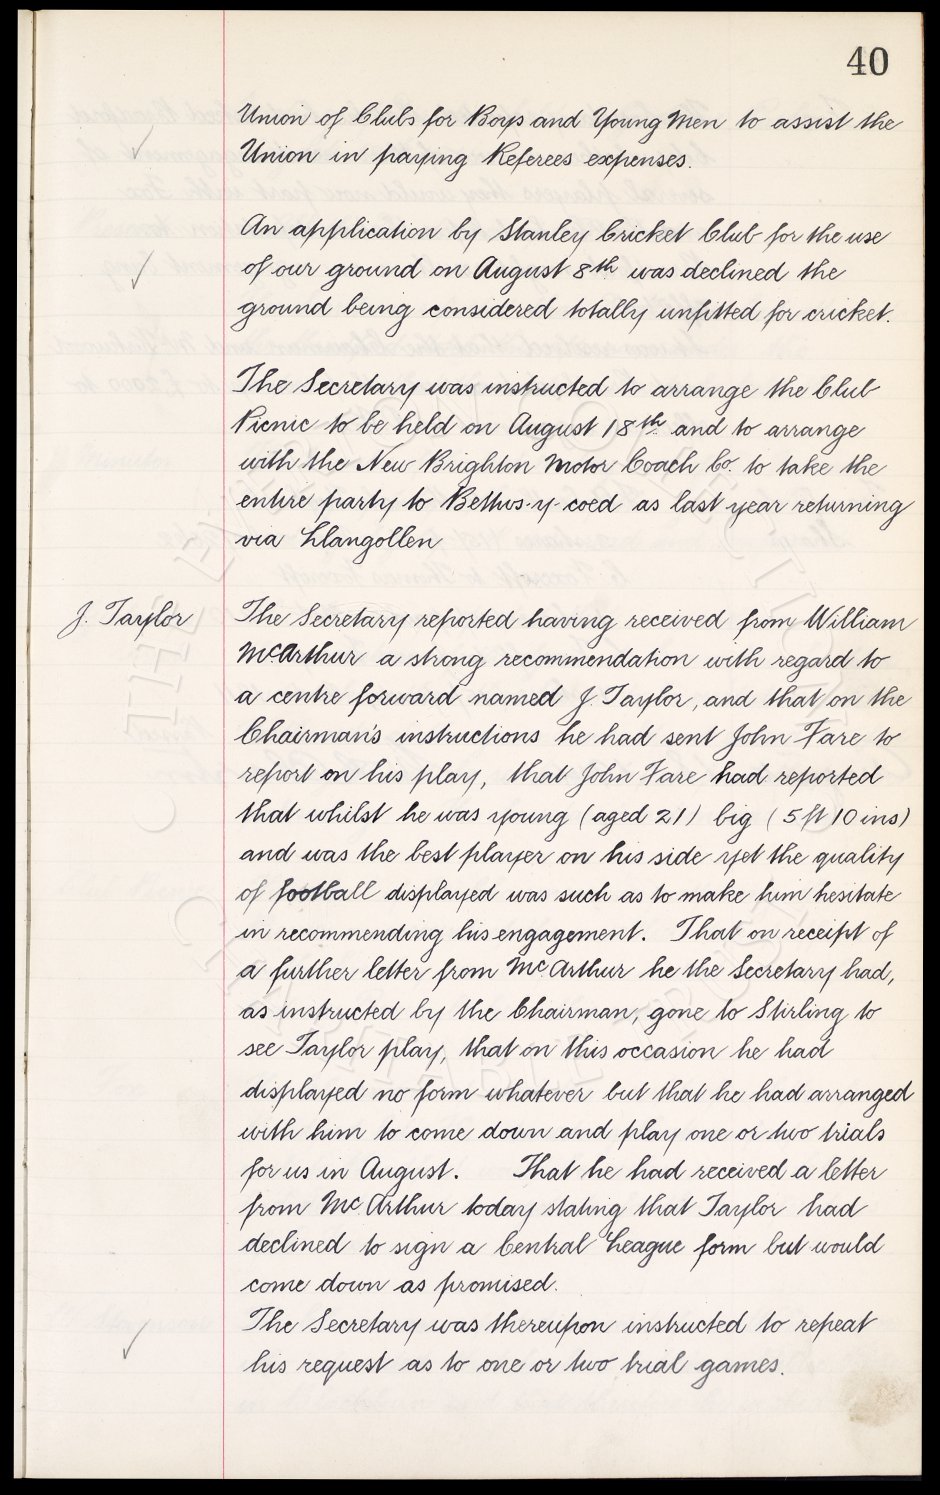 40
Union of Clubs for Boys and Young Men to assist the
Union in paying Referees expenses.
An application by Stanley Cricket Club for the use
of our ground on August 8th was declined the
ground being considered totally unfitted for cricket.
The Secretary was instructed to arrange the Club
Picnic to be held on August 18th and to arrange
with the New Brighton Motor Coach Co. to take the
entire party to Bettws-y-coed as last year returning
via Llangollen
J. Taylor
The Secretary reported having received from William
McArthur a strong recommendation with regard to
a centre forward named J. Taylor, and that on the
Chairman's instructions he had sent John Fare to
report on his play, that John Fare had reported
that whilst he was young (aged 21) big (5 ft 10 ins)
and was the best player on his side yet the quality
of football displayed was such as to make him hesitate
in recommending his engagement. That on receipt of
a further letter from McArthur he the Secretary had,
as instructed by the Chairman, gone to Stirling to
see Taylor play, that on this occasion he had
displayed no form whatever but that he had arranged
with him to come down and play one or two trials
for us in August. That he had received a letter
from McArthur today stating that Taylor had
declined to sign a Central League form but would
come down as promised.
The Secretary was thereupon instructed to repeat
his request as to one or two trial games.